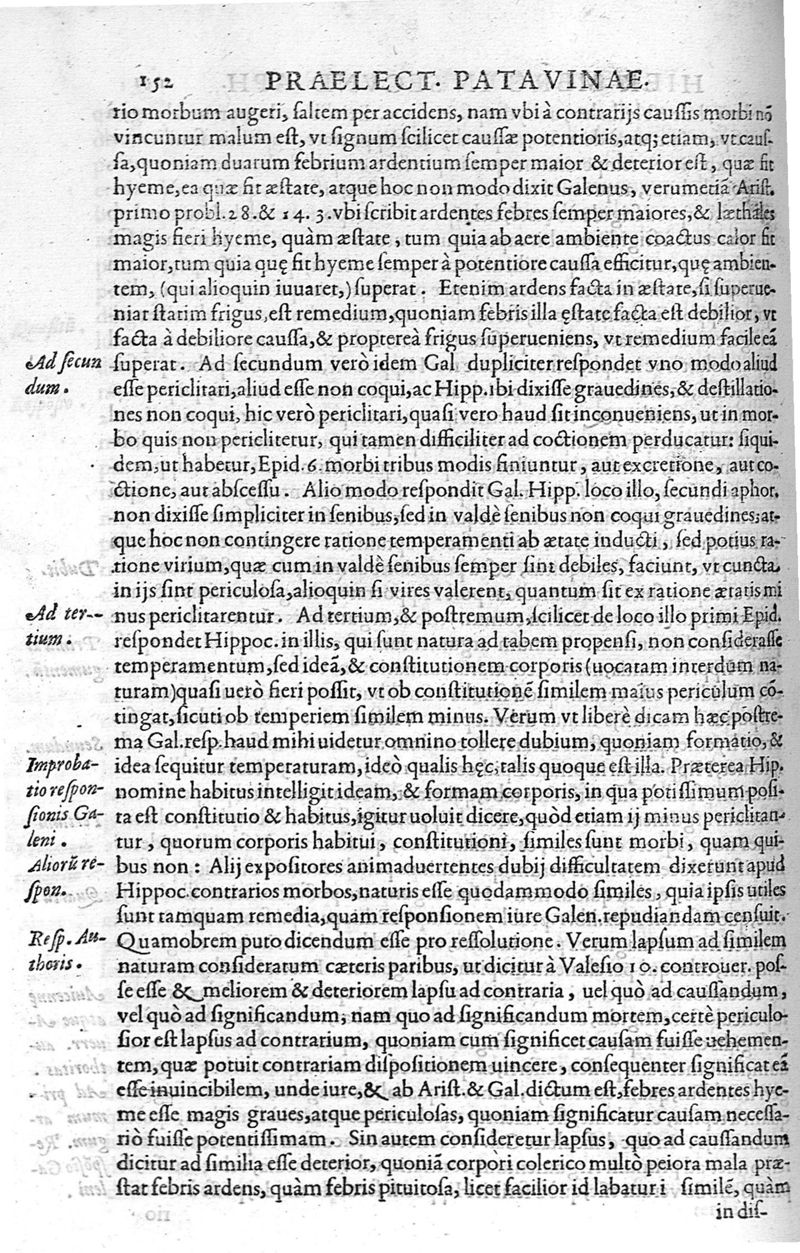 152 PRAELECT. PATAVINAE.
rio morbum augeri, saltem per accidens, nam vbi à contrarijs caussis morbi nō
vincuntur malum est, vt signum scilicet caussæ potentioris, atq; etiam, vt caus-
sa, quoniam duarum febrium ardentium semper maior & deterior est, quæ fit
hyeme, ea quæ fit æstate, atque hoc non modo dixit Galenus, verumetiā Arist.
primo probl. 28. & 14. 3. vbi scribit ardentes febres semper maiores, & læthales
magis fieri hyeme, quàm æstate, tum quia ab aere ambiente coactus calor fit
maior, tum quia quę fit hyeme semper à potentiore caussa efficitur, quę ambien-
tem, (qui alioquin iuuaret,) superat. Etenim ardens facta in æstate, si superue-
niat statim frigus, est remedium, quoniam febris illa ęstate facta est debilior, vt
facta à debiliore caussa, & proptereà frigus superueniens, vt remedium facile eā
Ad secun
superat. Ad secundum verò idem Gal. dupliciter respondet vno modo aliud
dum.
esse periclitari, aliud esse non coqui, ac Hipp. ibi dixisse grauedines, & destillatio-
nes non coqui, hic verò periclitari, quasi vero haud sit inconueniens, ut in mor-
bo quis non periclitetur, qui tamen difficiliter ad coctionem perducatur: siqui-
dem, ut habetur, Epid. 6. morbi tribus modis finiuntur, aut excretione, aut co-
ctione, aut abscessu. Alio modo respondit Gal. Hipp. loco illo, secundi aphor.
non dixisse simpliciter in senibus, sed in valdè senibus non coqui grauedines; at-
que hoc non contingere ratione temperamenti ab ætate inducti, sed potius ra-
tione virium, quæ cum in valdè senibus semper sint debiles, faciunt, vt cuncta
in ijs sint periculosa, alioquin si vires valerent, quantum sit ex ratione ætatis mi
Ad ter-
nus periclitarentur. Ad tertium, & postremum, scilicet de loco illo primi Epid.
tium.
respondet Hippoc. in illis, qui sunt natura ad tabem propensi, non considerasse
temperamentum, sed ideā, & constitutionem corporis (uocatam interdum na-
turam) quasi uerò fieri possit, vt ob constitutionē similem maius periculum cō-
tingat, sicuti ob temperiem similem minus. Verum vt liberè dicam hæc postre-
ma Gal. resp. haud mihi uidetur omnino tollere dubium, quoniam formatio, &
Improba-
idea sequitur temperaturam, ideò qualis hęc, talis quoque est illa. Præterea Hip.
tio respon-
nomine habitus intelligit ideam, & formam corporis, in qua potissimum posi-
sionis Ga-
ta est constitutio & habitus, igitur uoluit dicere, quòd etiam ij minus periclitan-
leni.
tur, quorum corporis habitui, constitutioni, similes sunt morbi, quam qui-
Aliorū re-
bus non: Alij expositores animaduertentes dubij difficultatem dixerunt apud
spon.
Hippoc. contrarios morbos, naturis esse quodammodo similes, quia ipsis utiles
sunt tamquam remedia, quam responsionem iure Galen. repudiandam censuit.
Resp. Au-
Quamobrem puto dicendum esse pro ressolutione. Verum lapsum ad similem
thoris.
naturam consideratum cæteris paribus, ut dicitur à Valesio 10. controuer. pos-
se esse & meliorem & deteriorem lapsu ad contraria, uel quò ad caussandum,
vel quò ad significandum; nam quo ad significandum mortem, certè periculo-
sior est lapsus ad contrarium, quoniam cum significet causam fuisse uehemen-
tem, quæ potuit contrariam dispositionem uincere, consequenter significat eā
esse inuincibilem, unde iure, & ab Arist. & Gal. dictum est, febres ardentes hye-
me esse magis graues, atque periculosas, quoniam significatur causam necessa-
riò fuisse potentissimam. Sin autem consideretur lapsus, quo ad caussandum
dicitur ad similia esse deterior, quoniā corpori colerico multò peiora mala præ-
stat febris ardens, quàm febris pituitosa, licet facilior id labatur i similē, quàm
in dis-